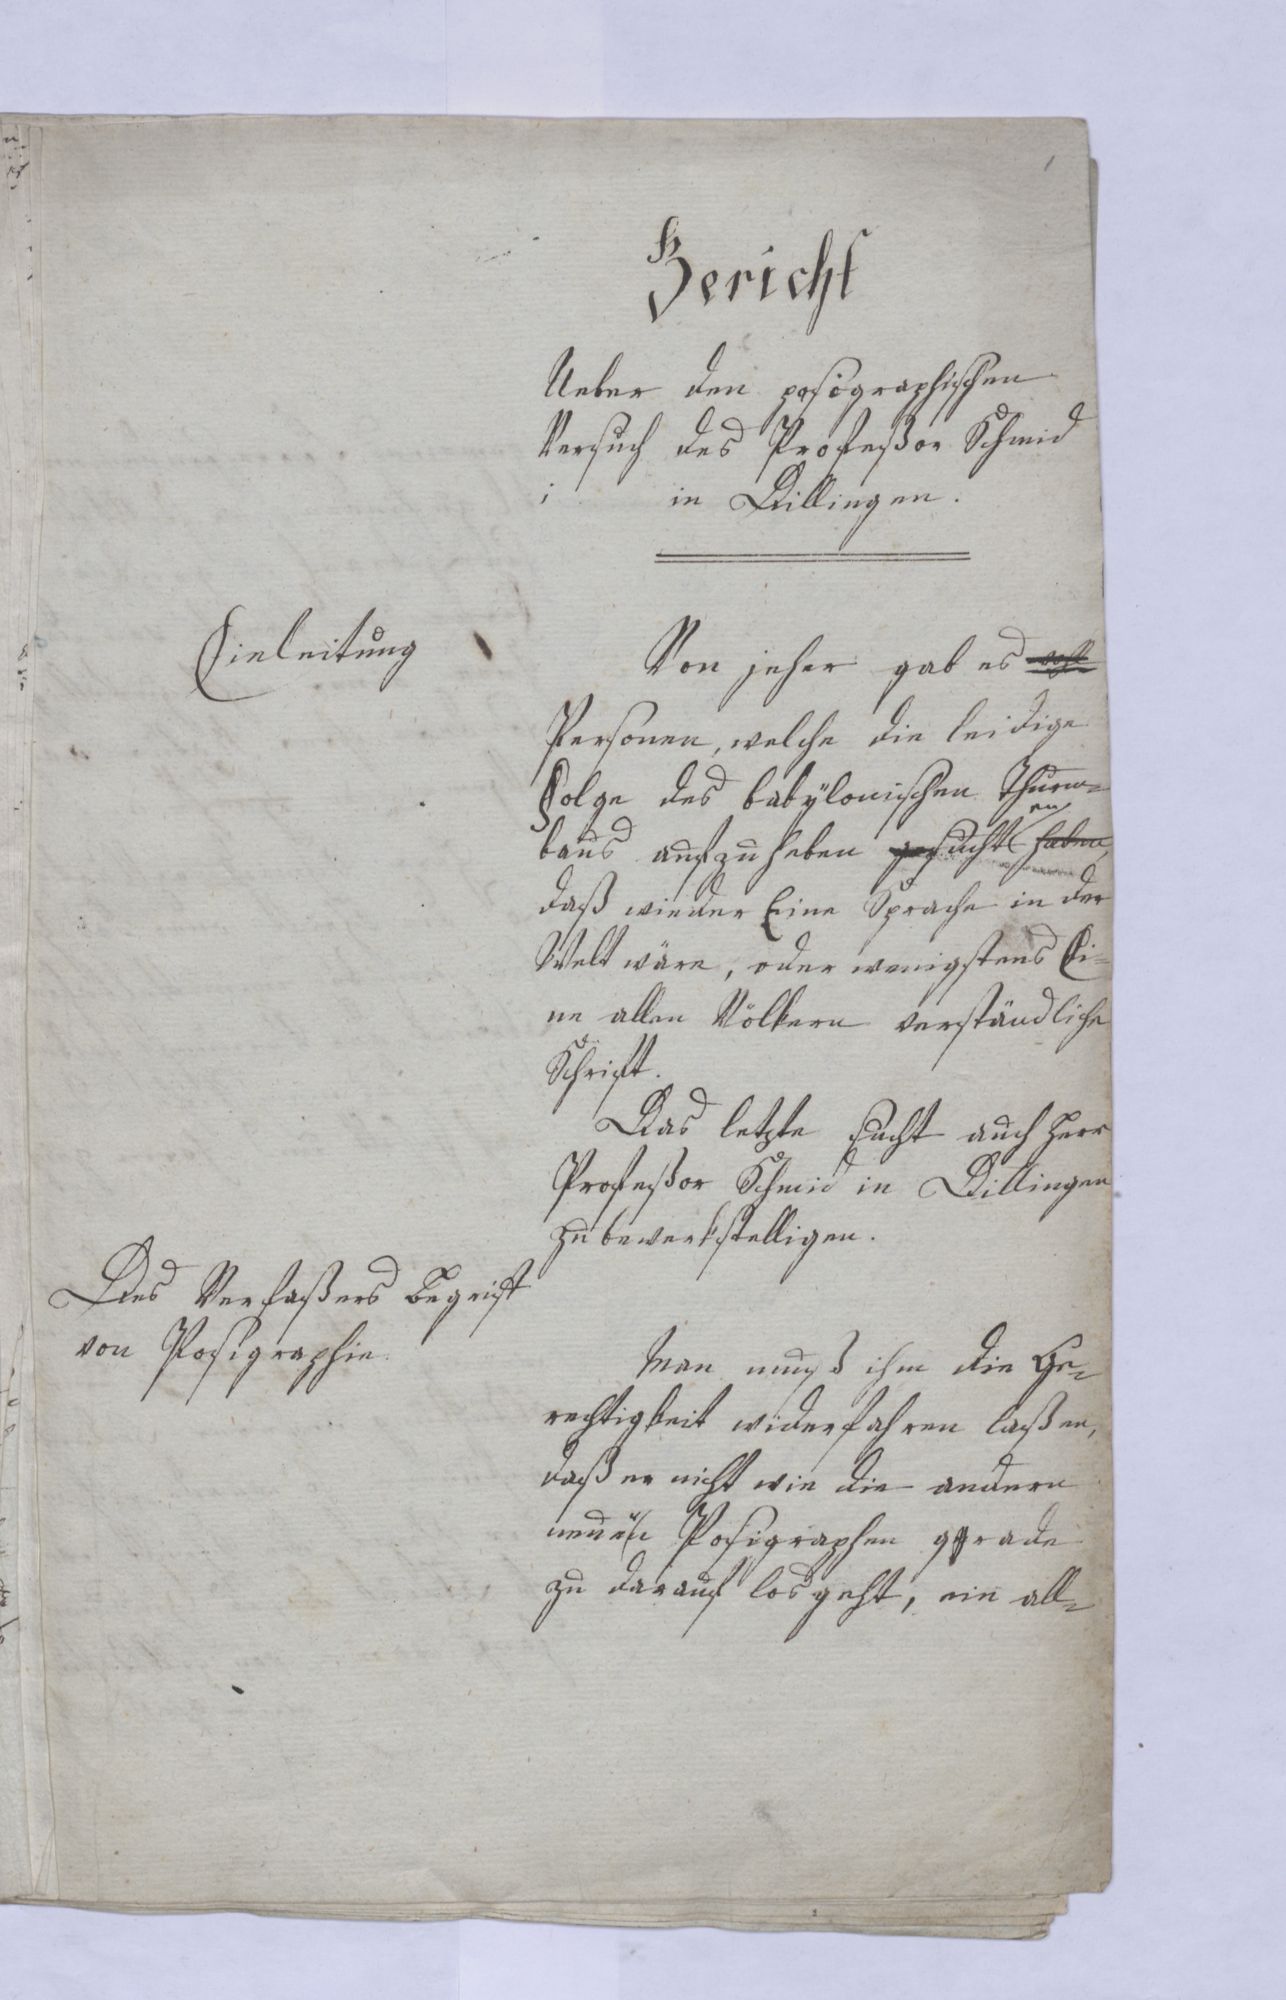 1
Bericht
Ueber den pasigraphischen
Versuch des Profeßor Schmid
in Dillingen.
Einleitung
Von jeher gab es
Personen, welche die leidige
Folge des babÿlonischen Thurm-
baus aufzuheben gesuchten haben,
daß wieder Eine Sprache in der
Welt wäre, oder wenigstens Ei-
ne allen Völkern verständliche
Schrift.
Das letzte sucht auch Herr
Profeßor Schmid in Dillingen
zu bewerkstelligen.
Des Verfaßers Begriff
von Pasigraphie.
Man muß ihm die Ge-
rechtigkeit widerfahren laßen,
daß er nicht wie die andern
neuen Pasigraphen gerade
zu darauf losgeht, ein all-